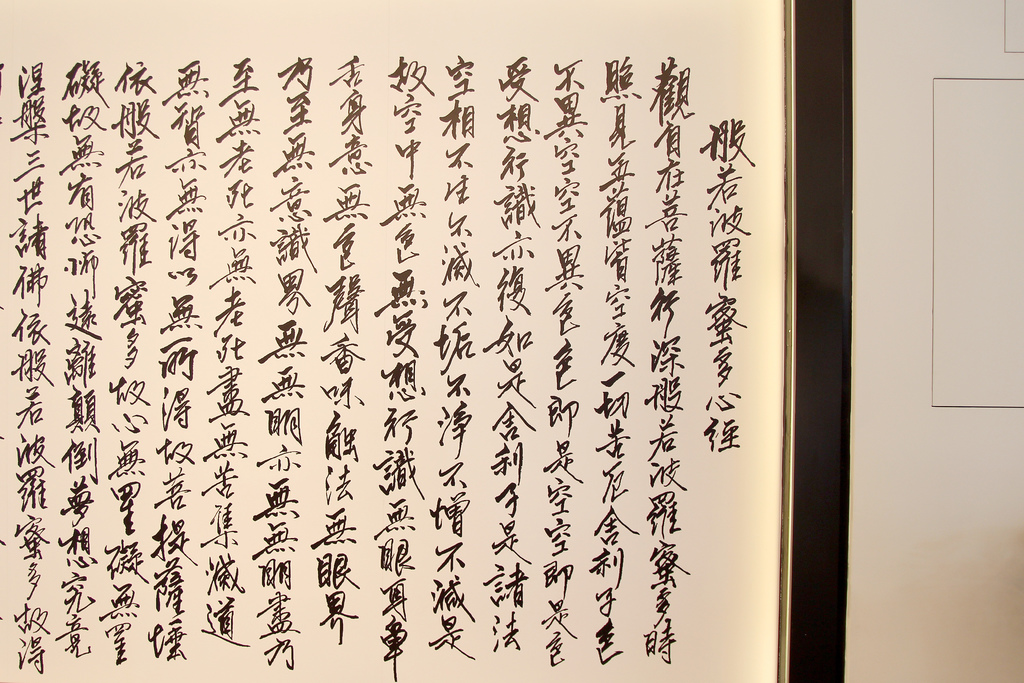 般若波羅蜜多心經
觀自在菩薩行深般若波羅蜜多時
照見五蘊皆空度一切苦厄舍利子色
不異空空不異色色即是空空即是色
受想行識亦復如是舍利子是諸法
空相不生不滅不垢不淨不增不減是
故空中無色無受想行識無眼耳鼻
舌身意無色聲香味觸法無眼界
乃至無意識界無無明亦無無明盡乃
至無老死亦無老死盡無苦集滅道
無智亦無得以無所得故菩提薩埵
依般若波羅蜜多故心無罣礙無罣
礙故無有恐怖遠離顛倒夢想究竟
涅槃三世諸佛依般若波羅蜜多故得